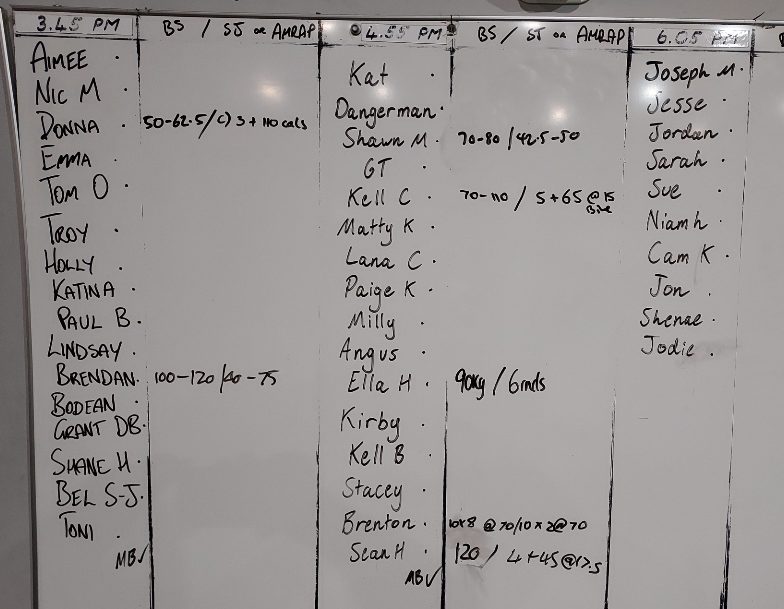 3.45 PM
BS / SJ or AMRAP
AIMEE
NIC M
DONNA 50-62.5/(c) 3 + 110 cals
EMMA
TOM O
TROY
HOLLY
KATINA
PAUL B.
LINDSAY
BRENDAN 100-120/40-75
BODEAN
GRANT DB
SHANE H
BEL S-J
TONI
MB✓
4.55 PM
BS / ST or AMRAP
Kat
Dangerman
Shawn M 70-80 / 42.5-50
GT
Kell C 70-110 / 5+65 @ 15
Bike
Matty K
Lana C
Paige K
Milly
Angus
Ella H 90kg / 6rnds
Kirby
Kell B
Stacey
Brenton 10x8 @ 70/10 x 2@70
Sean H 120 / 4+45@17.5
MB✓
6.05 PM
Joseph M
Jesse
Jordan
Sarah
Sue
Niamh
Cam K
Jon
Shenae
Jodie